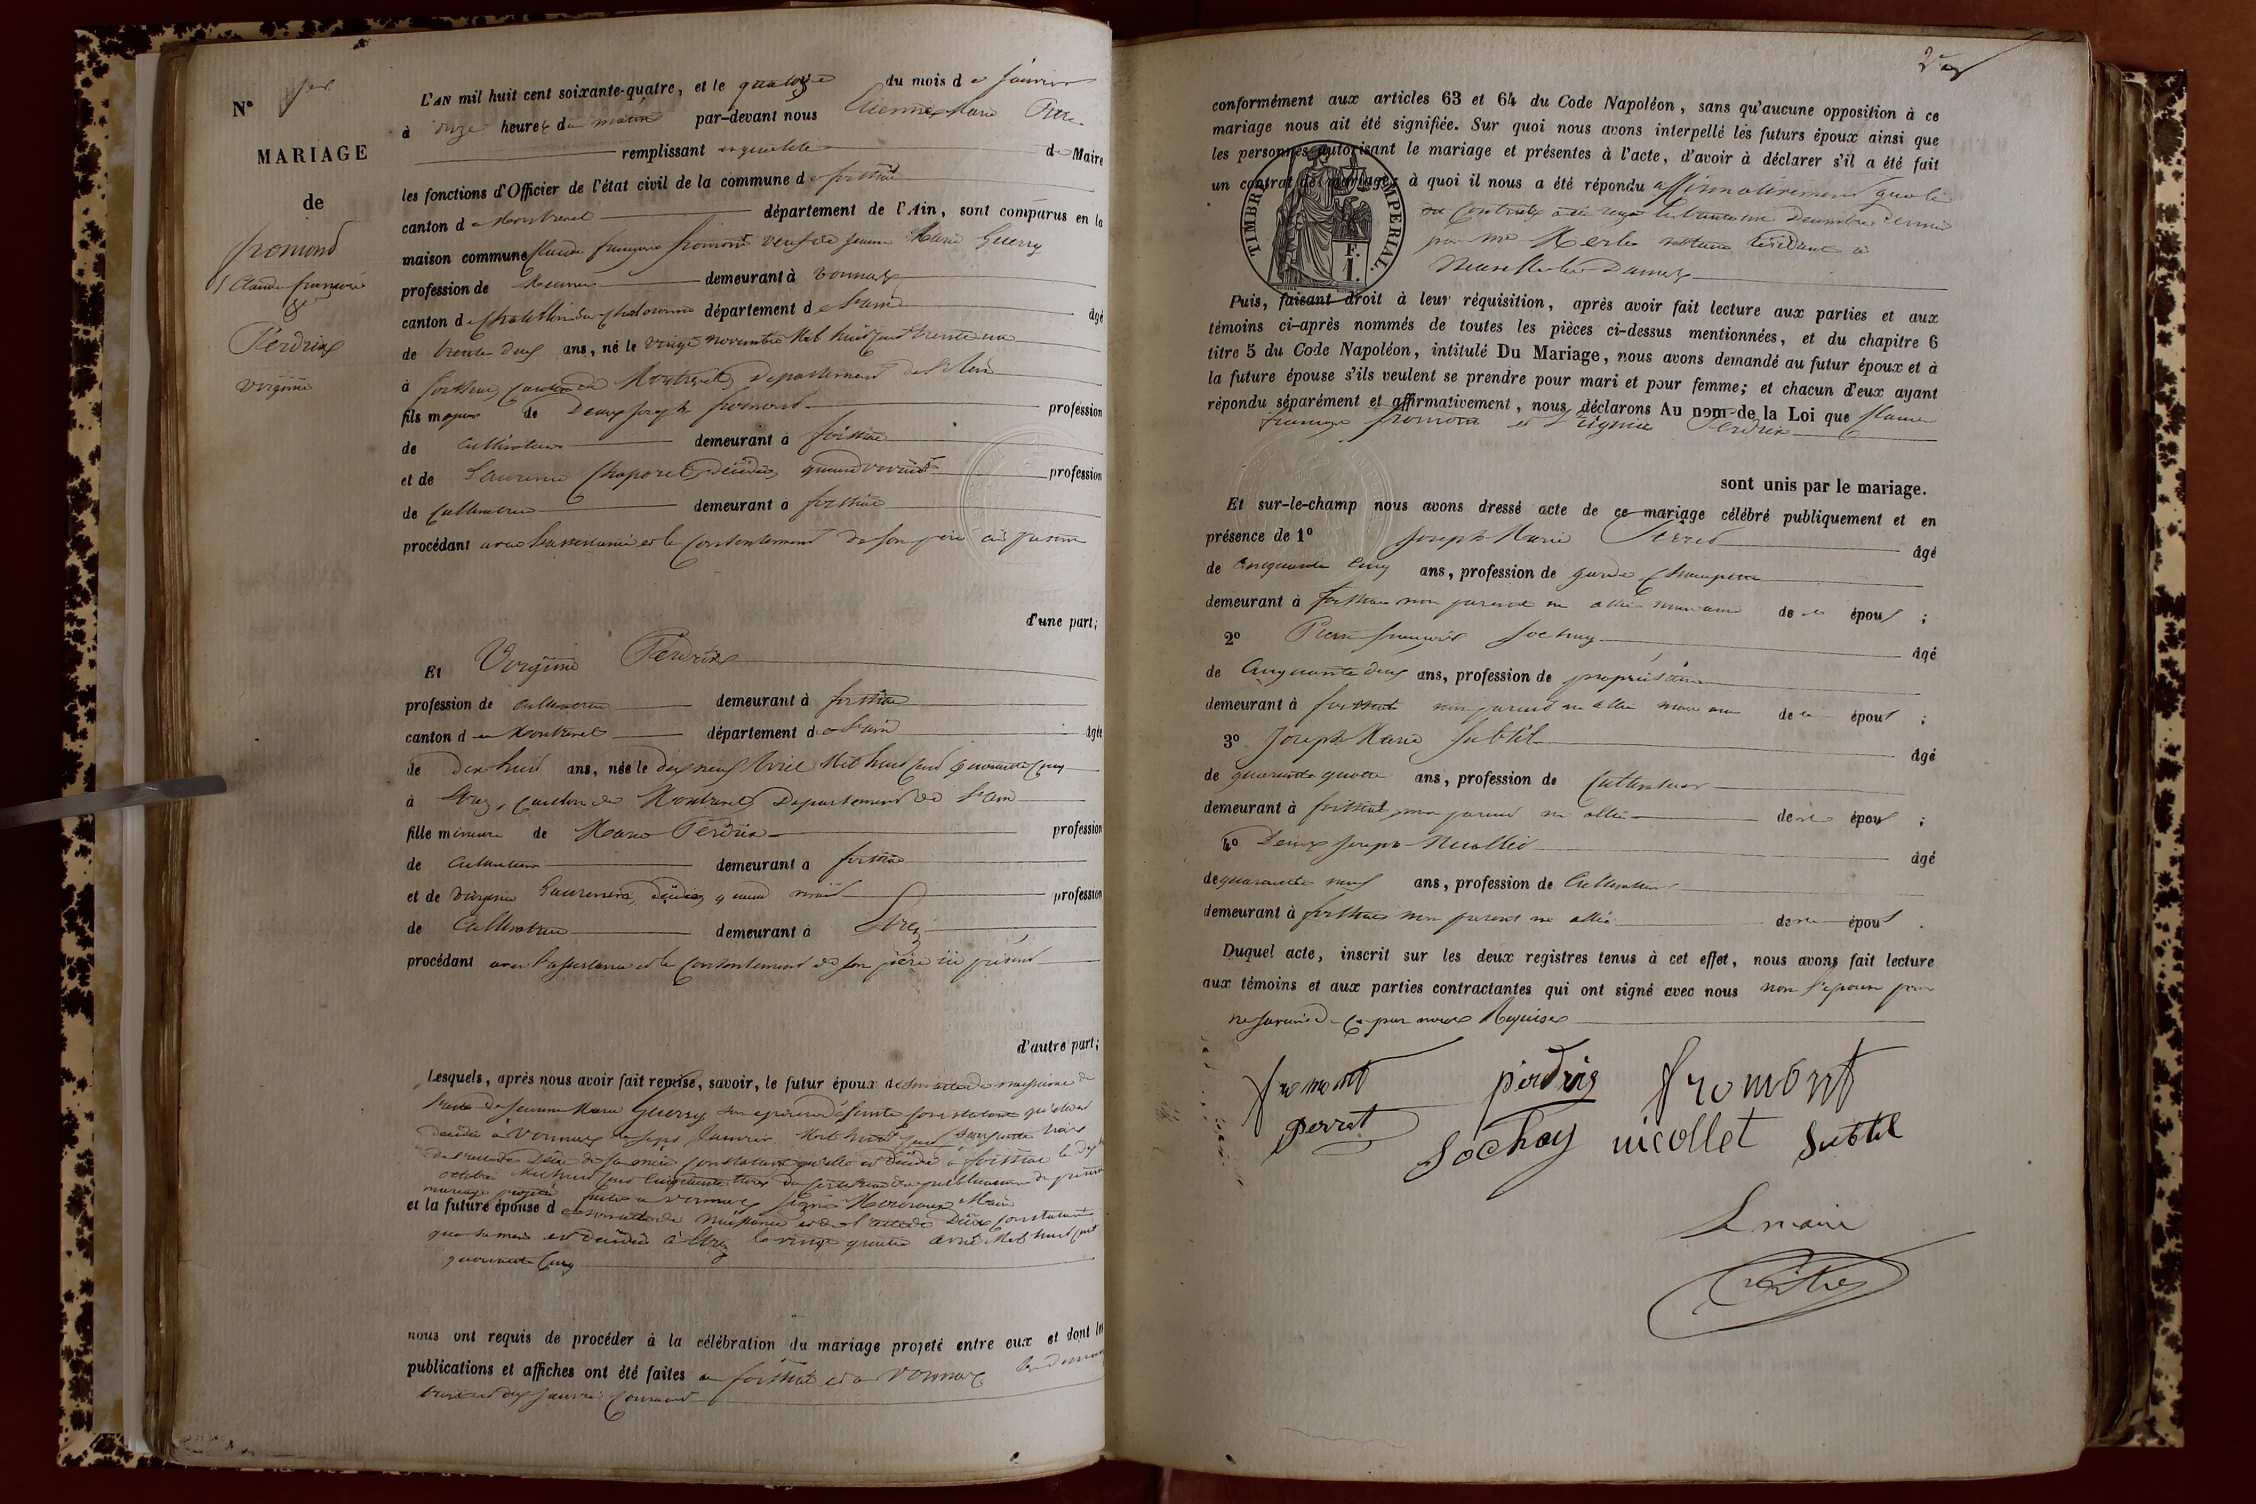 N°
MARIAGE
de
fromont
Claude françois
&
Perdrix
Virginie
L'AN mil huit cent soixante-quatre, et le quatorze du mois de Janvier
à onze heures du matin par-devant nous Etienne Marie
remplissant de Maire
les fonctions d'Officier de l'état civil de la commune de foissiat
canton de Montrevel département de l'Ain, sont comparus en la
maison commune Claude françois fromont veuf de Jeanne Marie Guerry
profession de demeurant à Vonnas
canton de Chatillon sur Chalaronne département de l'ain âgé
de trente deux ans, né le vingt novembre Mil huit cent trente un
à foissiat, canton de Montrevel, Département de l'Ain
fils majeur de Denis Joseph fromont profession
de cultivateur demeurant à foissiat
et de Laurence Chaporet, décédée, quand vivait profession
de Cultivatrice demeurant à foissiat
procédant avec l'assistance et le Consentement de son père ici présent
d'une part;
Et Virginie Perdrix
profession de cultivatrice demeurant à foissiat
canton de Montrevel département de l'ain âgée
de dix huit ans, née le dix neuf Avril Mil huit cent quarante cinq
à Etrez, Canton de Montrevel, Département de l'ain
fille mineure de Marie Perdrix profession
de cultivateur demeurant à foissiat
et de Virginie Laurencin, décédée, quand vivait profession
de Cultivatrice demeurant à Etrez
procédant avec l'assistance et le Consentement de son père ici présent
d'autre part;
Lesquels, après nous avoir fait remise, savoir, le futur époux de son acte de naissance de
l'acte de Jeanne Marie Guerry son épouse défunte constatant qu'elle est
décédée à Vonnas le sept Janvier Mil huit cent soixante trois
de l'acte de Décès de sa mère constatant qu'elle est décédée à foissiat le dix
octobre Mil huit cent cinquante trois du certificat de publication du présent
mariage projeté faites à Vonnas signé Maire
et la future épouse de son acte de naissance et de l'acte de Décès constatant
que sa mère est décédée à Etrez le vingt quatre avril Mil huit cent
quarante cinq
nous ont requis de procéder à la célébration du mariage projeté entre eux et dont les
publications et affiches ont été faites à foissiat et à Vonnas les dimanches
trois et dix Janvier Courant
2
conformément aux articles 63 et 64 du Code Napoléon, sans qu'aucune opposition à ce
mariage nous ait été signifiée. Sur quoi nous avons interpellé les futurs époux ainsi que
les personnes autorisant le mariage et présentes à l'acte, d'avoir à déclarer s'il a été fait
un contrat de mariage; à quoi il nous a été répondu affirmativement que le
dit Contrat a été reçu le trente un Décembre dernier
par Me Merle notaire résidant à
Neuville les Dames
TIMBRE IMPERIAL.
F.
1.
Puis, faisant droit à leur réquisition, après avoir fait lecture aux parties et aux
témoins ci-après nommés de toutes les pièces ci-dessus mentionnées, et du chapitre 6
titre 5 du Code Napoléon, intitulé Du Mariage, nous avons demandé au futur époux et à
la future épouse s'ils veulent se prendre pour mari et pour femme; et chacun d'eux ayant
répondu séparément et affirmativement, nous déclarons Au nom de la Loi que Claude
françois fromont et Virginie Perdrix
sont unis par le mariage.
Et sur-le-champ nous avons dressé acte de ce mariage célébré publiquement et en
présence de 1° Joseph Marie Perret âgé
de Cinquante Cinq ans, profession de garde Champêtre
demeurant à foissiat non parent ni allié des époux ;
2° Pierre françois Sochay âgé
de Cinquante deux ans, profession de propriétaire
demeurant à foissiat non parent ni allié des époux ;
3° Joseph Marie Subtil âgé
de quarante quatre ans, profession de Cultivateur
demeurant à foissiat non parent ni allié des époux ;
4° Denis Joseph Nicollet âgé
de quarante neuf ans, profession de Cultivateur
demeurant à foissiat non parent ni allié des époux .
Duquel acte, inscrit sur les deux registres tenus à cet effet, nous avons fait lecture
aux témoins et aux parties contractantes qui ont signé avec nous non l'épouse pour
ne savoir de ce par nous Requise
fromont perdrix fromont
perret Sochay nicollet Subtil
Le maire